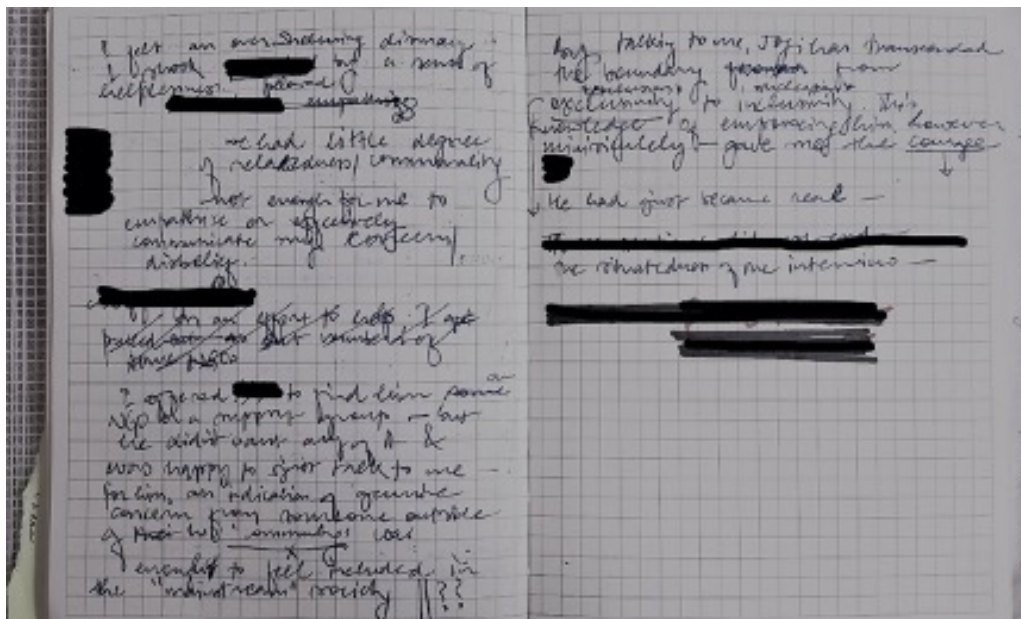 I felt an overwhelming dismay.
I shook by a sense of
helplessness.
empathising
I had little degree
of relatedness/communality
not enough for me to
empathise or effectively
communicate my concern/
disbelief.
In an effort to help, I got
I offered to find him some
NGO or a support group – but
he didn't want any of it &
was happy to just talk to me
for him, an indication of genuine
concern from someone outside
of his "community" was
enough to feel included in
the "mainstream" society ??
By talking to me, Jogi has transcended
the boundary from
exclusivity to inclusivity. This
knowledge of embracing him, however
minisculely – gave me the courage
He had just became real –
the situatedness of the interview –